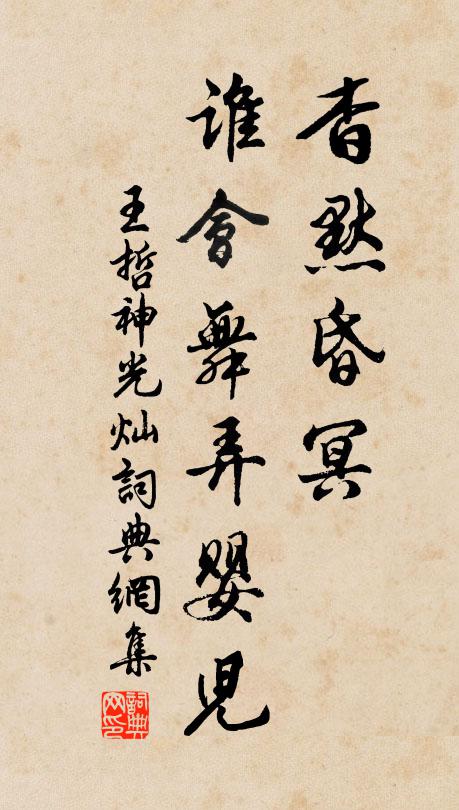 杳默昏冥
誰會舞弄嬰兒
王哲神光灿詞典網集
詞典网印